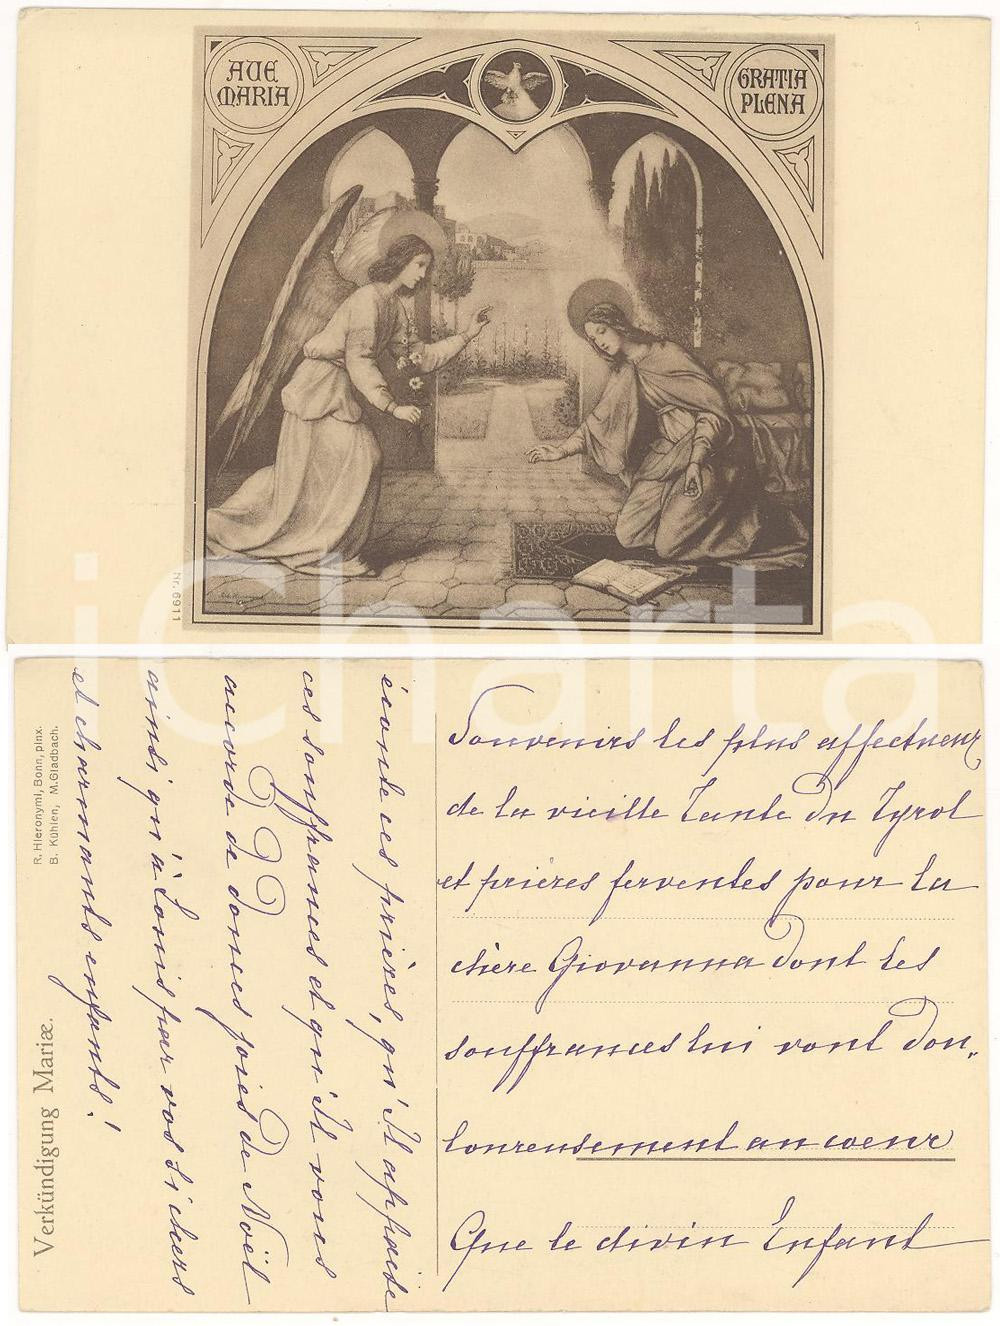 AVE
MARIA
GRATIA
PLENA
Nr. 6911
iCharta
Souvenirs les plus affectueux
de la vieille Tante du Tyrol
et prières ferventes pour la
chère Giovanna dont les
souffrances lui vont dou„
loureusement au coeur
Que le divin Enfant
écoute ces prières, qu'Il appaise
ces souffrances et qu'Il vous
accorde de douces joies de Noël
ainsi qu'à Louis par vos si chers
et charmants enfants!
R. Hieronymi, Bonn, pinx.
B. Kühlen, M.Gladbach.
Verkündigung Mariæ.